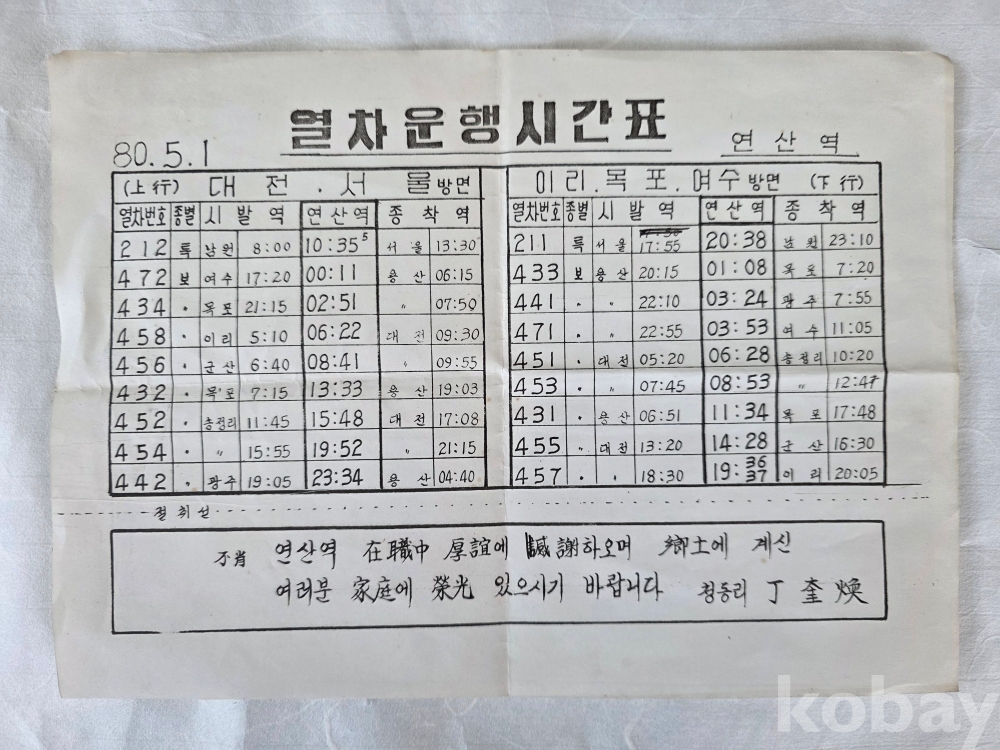 열차운행시간표
80.5.1 연산역
(上行) 대전.서울 방면
열차번호 종별 시발역 연산역 종착역
212 특 남원 8:00 10:35 5 서울 13:30
472 보 여수 17:20 00:11 용산 06:15
434 〃 목포 21:15 02:51 〃 07:50
458 〃 이리 5:10 06:22 대전 09:30
456 〃 군산 6:40 08:41 〃 09:55
432 〃 목포 7:15 13:33 용산 19:03
452 〃 총정리 11:45 15:48 대전 17:08
454 〃 〃 15:55 19:52 〃 21:15
442 〃 광주 19:05 23:34 용산 04:40
이리.목포.여수 방면 (下行)
열차번호 종별 시발역 연산역 종착역
211 특 서울 17:55 20:38 남원 23:10
433 보 용산 20:15 01:08 목포 7:20
441 〃 〃 22:10 03:24 광주 7:55
471 〃 〃 22:55 03:53 여수 11:05
451 〃 대전 05:20 06:28 총정리 10:20
453 〃 〃 07:45 08:53 〃 12:47
431 〃 용산 06:51 11:34 목포 17:48
455 〃 대전 13:20 14:28 군산 16:30
457 〃 〃 18:30 19:36 37 이리 20:05
절취선
不肖 연산역 在職中 厚誼에 感謝하오며 鄕土에 계신
여러분 家庭에 榮光 있으시기 바랍니다 청동리 丁奎煥
kobay